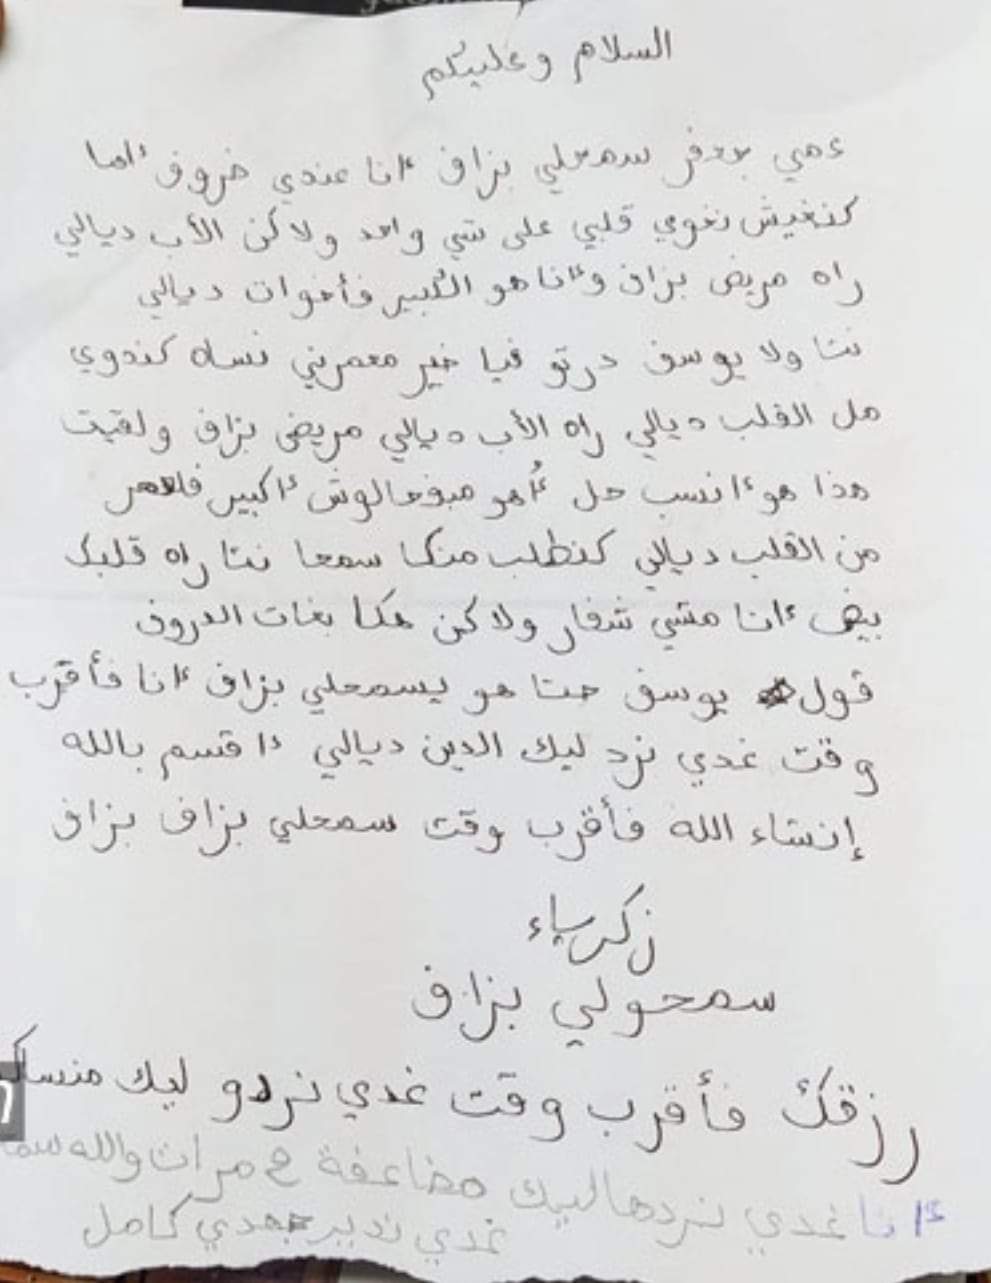 السلام وعليكم
عمي جعفر سمحلي بزاف أنا عندي ضروف أما
كنغيش نخوي قلبي على شي واحد ولاكن الأب ديالي
راه مريض بزاف وأنا هو الكبير فأخوات ديالي
نتا ولا يوسف درتو فيا خير معمرني نساه كندوي
مل القلب ديالي راه الأب ديالي مريض بزاف ولقيت
هذا هو أنسب حل أهو مبقالوش أكبير
من القلب ديالي كنطلب منك سمحا نتا راه قلبك
بيض أنا مشي شفار ولاكن هكا بغات الدروف
قول يوسف حتا هو يسمحلي بزاف أنا فأقرب
وقت غدي نرد ليك الدين ديالي أقسم بالله
إنشاء الله فأقرب وقت سمحلي بزاف بزاف
زكرياء
سمحولي بزاف
رزقك فأقرب وقت غدي نردو ليك
أنا غدي نردها ليك مضاعفة ح مرات والله
غدي ندير جهدي كامل